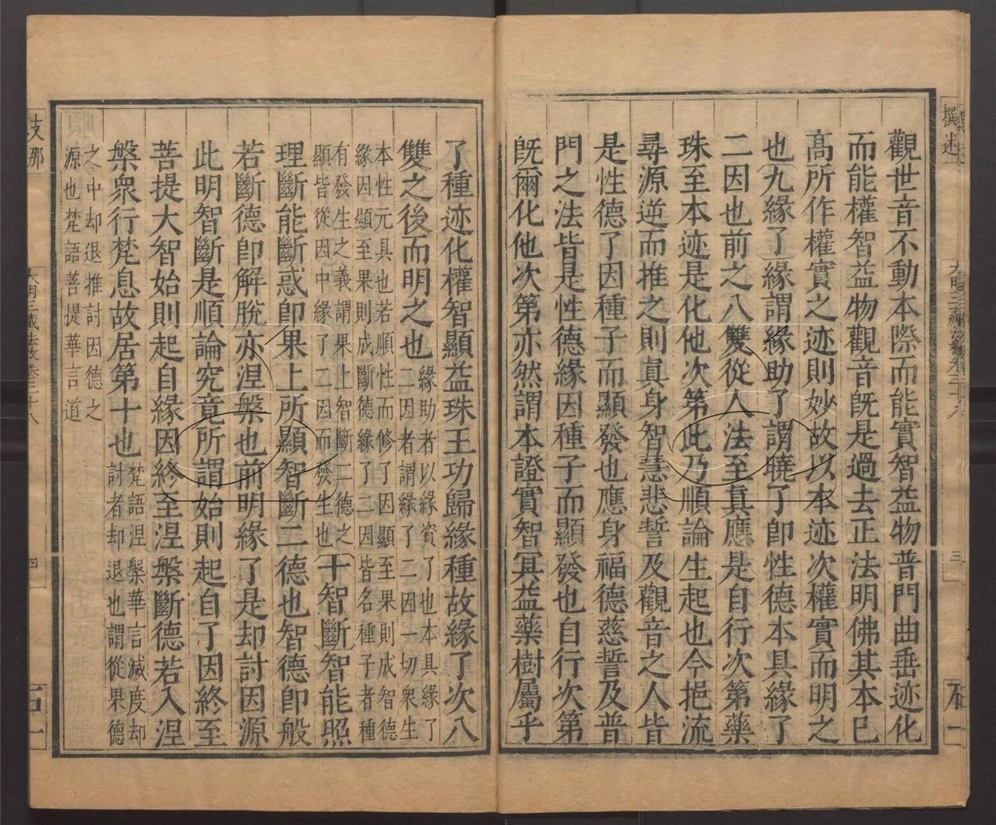 觀世音不動本際而能實智益物普門曲垂迹化
而能權智益物觀音旣是過去正法明佛其本已
高所作權實之迹則妙故以本迹次權實而明之
也九緣了緣謂緣助了謂曉了卽性德本具緣了
二因也前之八雙從人法至眞應是自行次第藥
珠至本迹是化他次第此乃順論生起也今挹流
尋源逆而推之則眞身智慧悲誓及觀音之人皆
是性德了因種子而顯發也應身福德慈誓及普
門之法皆是性德緣因種子而顯發也自行次第
旣爾化他次第亦然謂本證實智冥益藥樹屬乎
了種迹化權智顯益珠王功歸緣種故緣了次八
雙之後而明之也二因者謂緣了二因一切衆生
緣助者以緣資了也本具緣了
本性元具也若順性而修了因顯至果則成智德
緣因顯至果則成斷德緣了二因皆名種子者種
有發生之義謂果上智斷二德之
顯皆從因中緣了二因而發生也
十智斷智能照
理斷能斷惑卽果上所顯智斷二德也智德卽般
若斷德卽解脫亦涅槃也前明緣了是却討因源
此明智斷是順論究竟所謂始則起自了因終至
菩提大智始則起自緣因終至涅槃斷德若入涅
槃衆行梵息故居第十也
梵語涅槃華言滅度却
討者却退也謂從果德
之中却退推討因德之
源也梵語菩提華言道
撰述
三
支那
大明三藏法數卷三十八
四